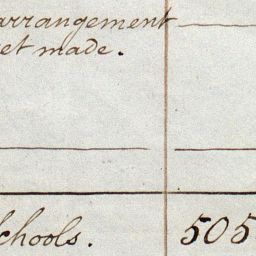 arrangement
et made.
chools. 505